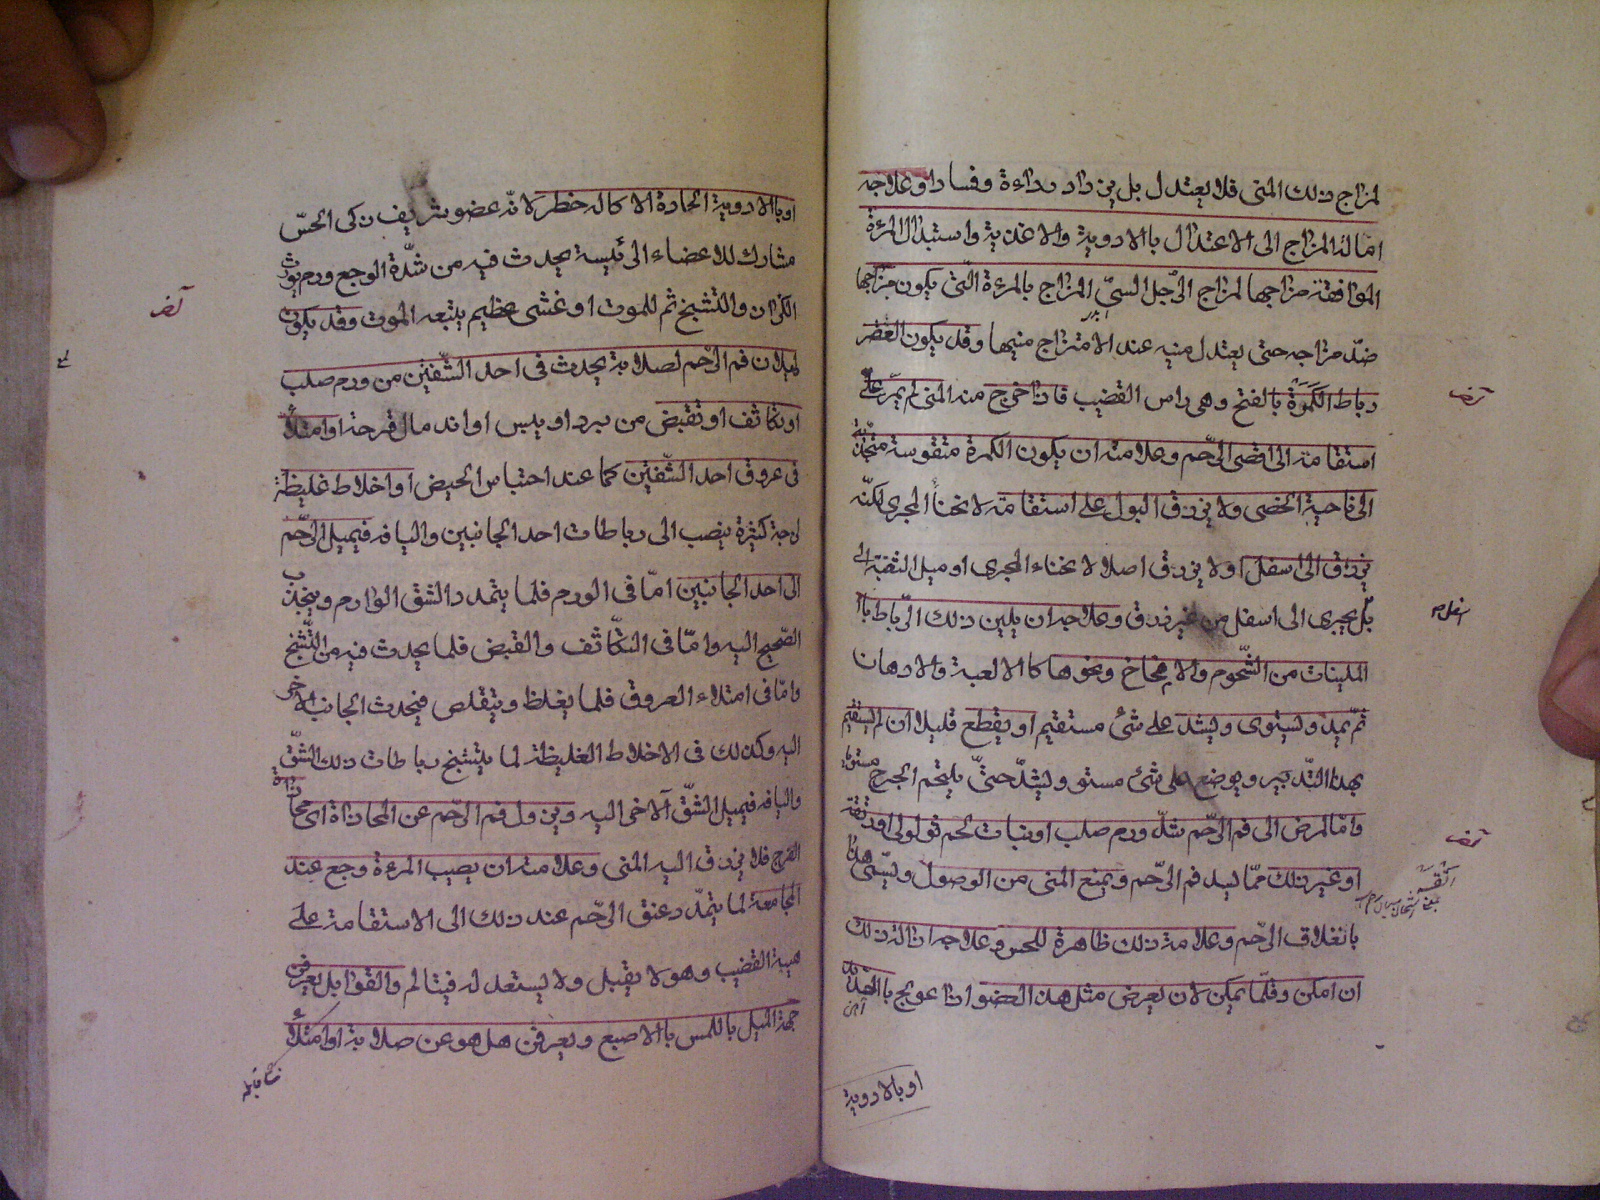 لمزاج ذلك المنى فلا يعتدل بل يزداد رداءة وفسادا وعلاجه
امالة المزاج الى الاعتدال باالادوية والاغذية واستبدال المرءة
الموافقة مزاجها لمزاج الرّجل السيّئ المزاج بالمرءة الّتى يكون مزاجها
ضدّ مزاجه حتى يعتدل منيه عند الامتزاج منيها وقد يكون العقر
رباط الكَمَرَة بالفتح وهى راس القضيب فاذا خرج منه المنى لم يمرّ على
استقامة الى اقصى الرّحم وعلامته ان يكون الكمرة متقوسة منجذبة
الى ناحية الخصى ولا يزرق البول على استقامة لانحناأ المجرى لكنّه
يزرق الى اسفل او لا يزرق اصلا لانحناء المجرى او ميل الثقبة الى
بل يجرى الى اسفل من غير زرق وعلاجه ان يلين ذلك الرّباط باا
الملينات من الشّحوم والامخاخ ونحوها كاالالعبة والادهان
ثمّ يمدّ ويستوى ويشد على شئ مستقيم او يقطع قليلا ان لم يستقيم
بهذا التّدبير ويوضع على شئ مستو ويشدّ حتىّ يلتحم الجرح مستويا
وامّا لمرض الى فم الرّحم مثل ورم صلب او نبات لحم ثولولى او رتقة
او غير ذلك ممّا يسد فم الرّحم ويمنع المنى من الوصول ويسمّى هذا
بانغلاق الرّحم وعلامة ذلك ظاهرة للمس وعلاجه ازالة ذلك
ان امكن وقلّما يمكن لان يعرض مثل هذا العضو اذا عولج باالحديد
اسفل
اوبالادوية
اوباالادوية الحادة الاكاله خطر لانّه عضو شريف ذكى الحسّ
مشارك للاعضاء الرئيسة يحدث فيه من شدّة الوجع ورم يورث
الكزاز والتشنج ثم للموت او غشى عظيم يتبعه الموت وقد يكون
لميلان فم الرّحم لصلابة يحدث فى احد الشّفتين من ورم صلب
او تكاثف او تقبض من برد او يبس او اندمال قرحة او امتلاأ
فى عروق احد الشّفتين كما عند احتباس الحيض او اخلاط غليظة
لزجة كثيرة ينصب الى رباطات احد الجانبين واليافه فيميل الرّحم
الى احد الجانبين امّا فى الورم فلما يتمدد الشق الوارم وينجذب
الصّحيح اليه وامّا فى التكّاثف والقبض فلما يحدث فيه من التّشنج
وامّا فى امتلاء العروق فلما يغلظ ويتقلص فينجذب الجانب الاخر
اليه وكذلك فى الاخلاط الغليظة لما يتشنج رباطات ذلك الشقّ
واليافه فيميل الشقّ آلاخر اليه ويزول فم الرّحم عن المحاذاة اى محاذاة
الفرج فلا يزرق اليه المنى وعلامته ان يصيب المرءة وجع عند
المجامعة لما يتمدّد عنق الرّحم عند ذلك الى الاستقامة على
هيئة القضيب وهو لا يقبل ولا يستعد له فيتالم والقوابل يعرفن
جهة الميل باللمس باالاصبع ويعرفن هل هو عن صلابة او امتلاأ